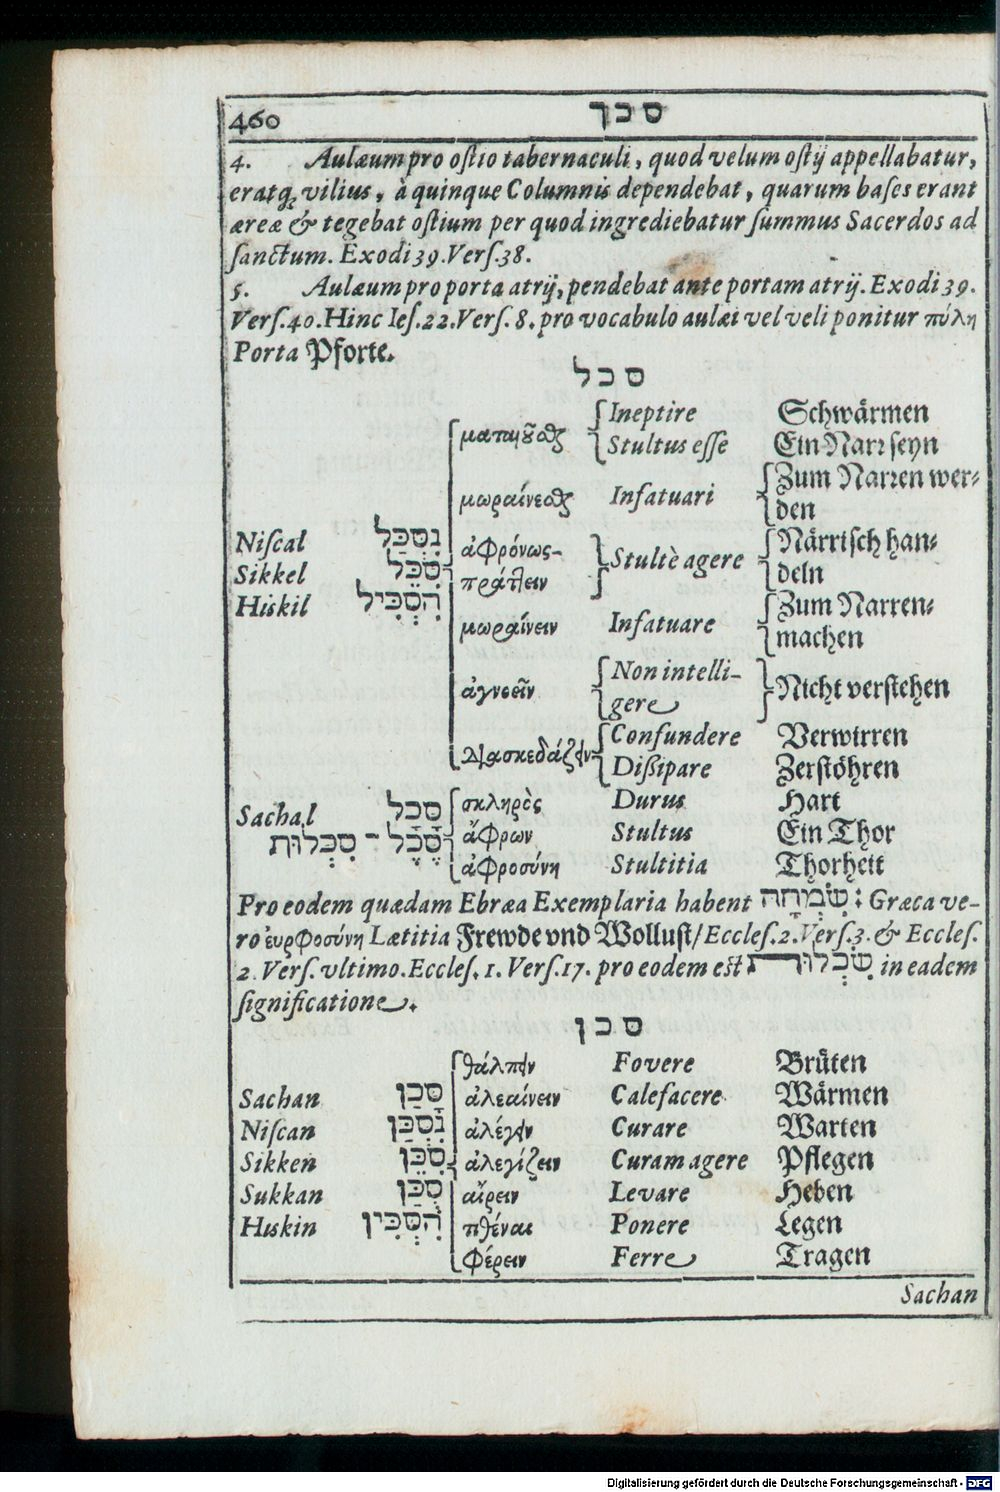 460 סכך
4. Aulæum pro ostio tabernaculi, quod velum ostij appellabatur,
eratq; vilius, à quinque Columnis dependebat, quarum bases erant
æreæ & tegebat ostium per quod ingrediebatur summus Sacerdos ad
sanctum. Exodi 39. Vers. 38.
5. Aulæum pro porta atrij, pendebat ante portam atrij. Exodi 39.
Vers. 40. Hinc Ies. 22. Vers. 8. pro vocabulo aulæi vel veli ponitur πύλη
Porta Pforte.
סכל
Ineptire Schwärmen
ματαιοῦσθαι Stultus esse Ein Narr seyn
μωραίνεσθαι Insatuari Zum Narren wer-
den
Niscal נִסְכַּל ἀφρόνως- Stultè agere Närrisch han-
Sikkel סִכֵּל πράττειν deln
Hiskil הִסְכִּיל Zum Narren-
μωραίνειν Infatuare machen
ἀγνοεῖν Non intelli- Nicht verstehen
gere
διασκεδάζειν Confundere Verwirren
Dißipare Zerstöhren
Sachal סָכַל σκληρὸς Durus Hart
סָכָל - סִכְלוּת ἄφρων Stultus Ein Thor
ἀφροσύνη Stultitia Thorheit
Pro eodem quædam Ebræa Exemplaria habent שִׂמְחָה: Græca ve-
ro ἐυρφοσύνη Lætitia Frewde vnd Wollust/ Eccles. 2. Vers. 3. & Eccles.
2. Vers. vltimo. Eccles. 1. Vers. 17. pro eodem est שִׂכְלוּת in eadem
significatione.
סכן
θάλπειν Fovere Brüten
Sachan סָכַן ἀλεαίνειν Calefacere Wärmen
Niscan נִסְכַּן ἀλέγειν Curare Warten
Sikken סִכֵּן ἀλεγίζειν Curam agere Pflegen
Sukkan סֻכַּן αἴρειν Levare Heben
Hiskin הִסְכִּין τιθέναι Ponere Legen
φέρειν Ferre Tragen
Sachan
Digitalisierung gefördert durch die Deutsche Forschungsgemeinschaft - DFG